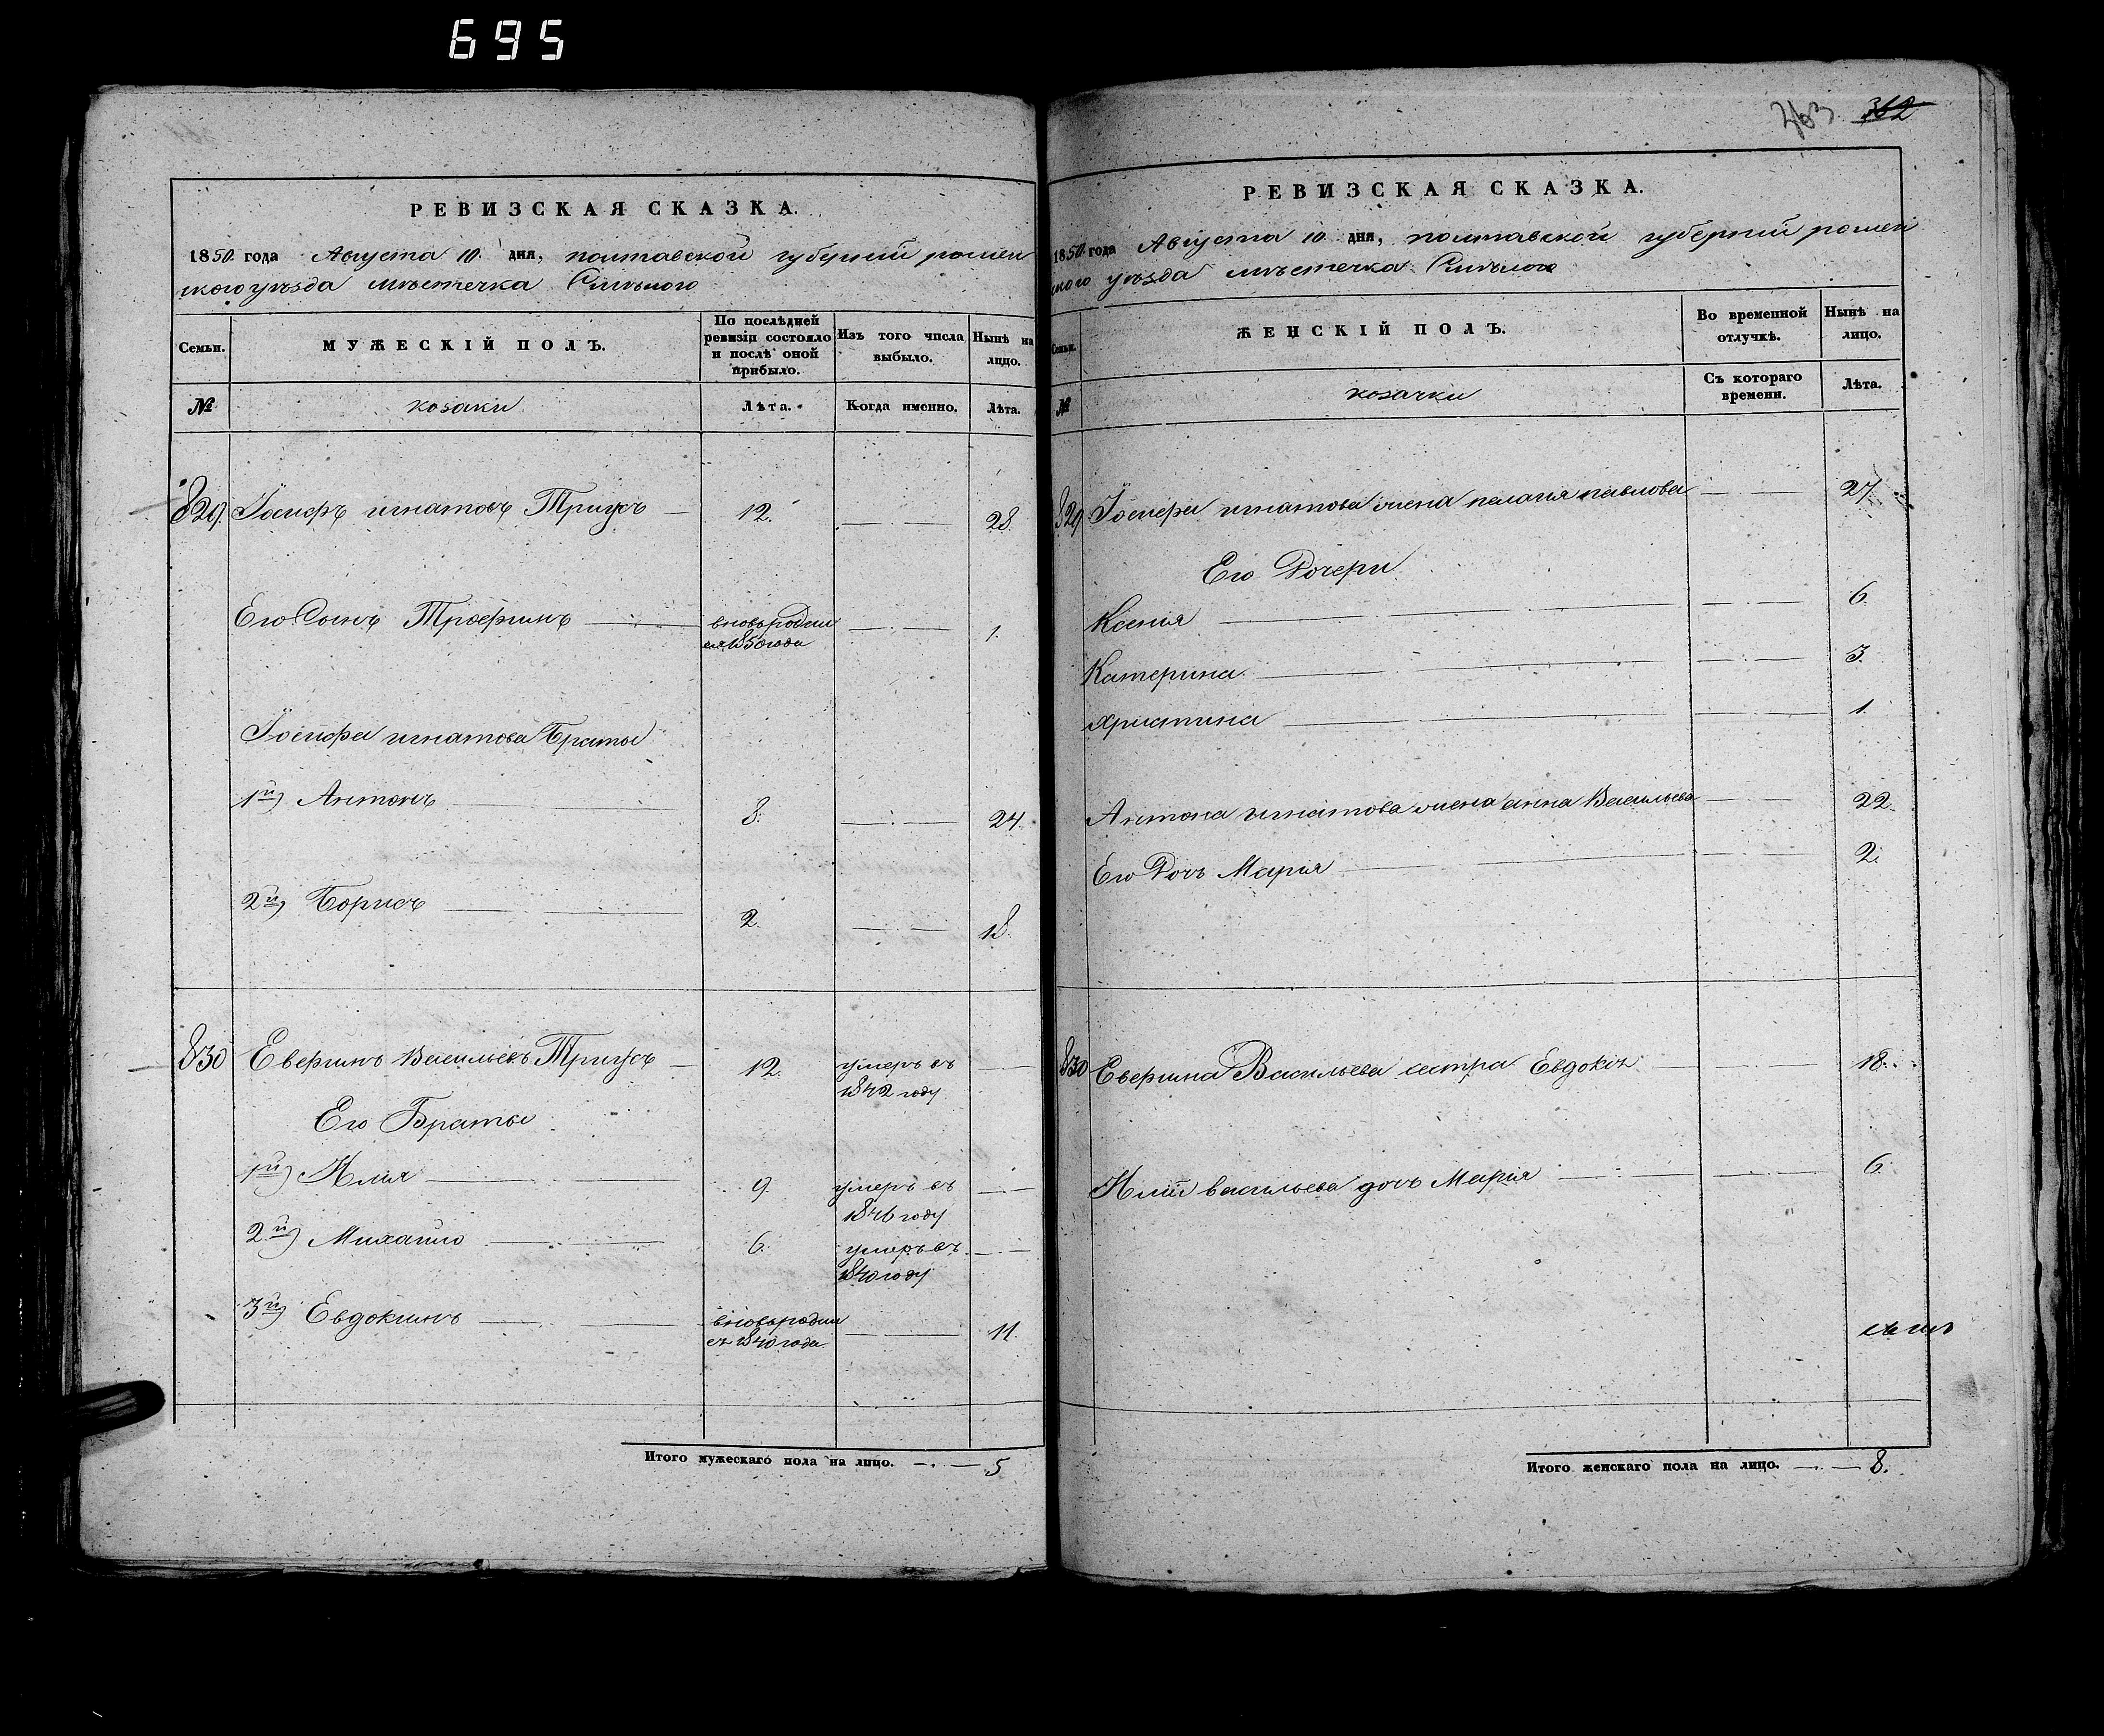 695
РЕВИЗСКАЯ СКАЗКА.
1850. года Августа 10. дня, полтавской губерній ромен
ского уѣзда мѣстечка Смѣлого
Семьи.
МУЖЕСКІЙ ПОЛЪ.
По послѣдней
ревизіи состояло
и послѣ оной
прибыло.
Изъ того числа
выбыло.
Нынѣ на
лицо.
№
козаки
Лѣта.
Когда именно.
Лѣта.
829. Іосифъ игнатовъ Тригубъ 12. 28.
Его Сынъ Трофимъ вновьродил
ся 1850 года 1.
Іосифа игнатова Браты
1й) Антонъ 8. 24.
2й) Борисъ 2. 18.
830 Евфимъ Васильевъ Тригубъ 12. умеръ въ
1842 году
Его Браты
1й) Илия 9. умеръ въ
1846 году
2й) Михайло 6. умеръ въ
1840 году
3й) Евдокимъ вновьродил
ся 1840 года 11.
Итого мужескаго пола на лицо. 5
263 362
РЕВИЗСКАЯ СКАЗКА.
1850 года Августа 10 дня, полтавской губерній ромен
ского уѣзда мѣстечка Смѣлого
Семьи.
ЖЕНСКІЙ ПОЛЪ.
Во временной
отлучкѣ.
Нынѣ на
лицо.
№
козачки
Съ котораго
времени.
Лѣта.
829 Іосифа игнатова жена пелагия павлова 27.
Его Дочери
Ксения 6.
Катерина 3.
Христина 1.
Антона игнатова жена анна Васильева 22.
Его Дочъ Мария 2.
830 Евфима Васильева сестра Евдокія 18.
Иліи васильева дочъ Марія 6.
Итого женскаго пола на лицо. 8.